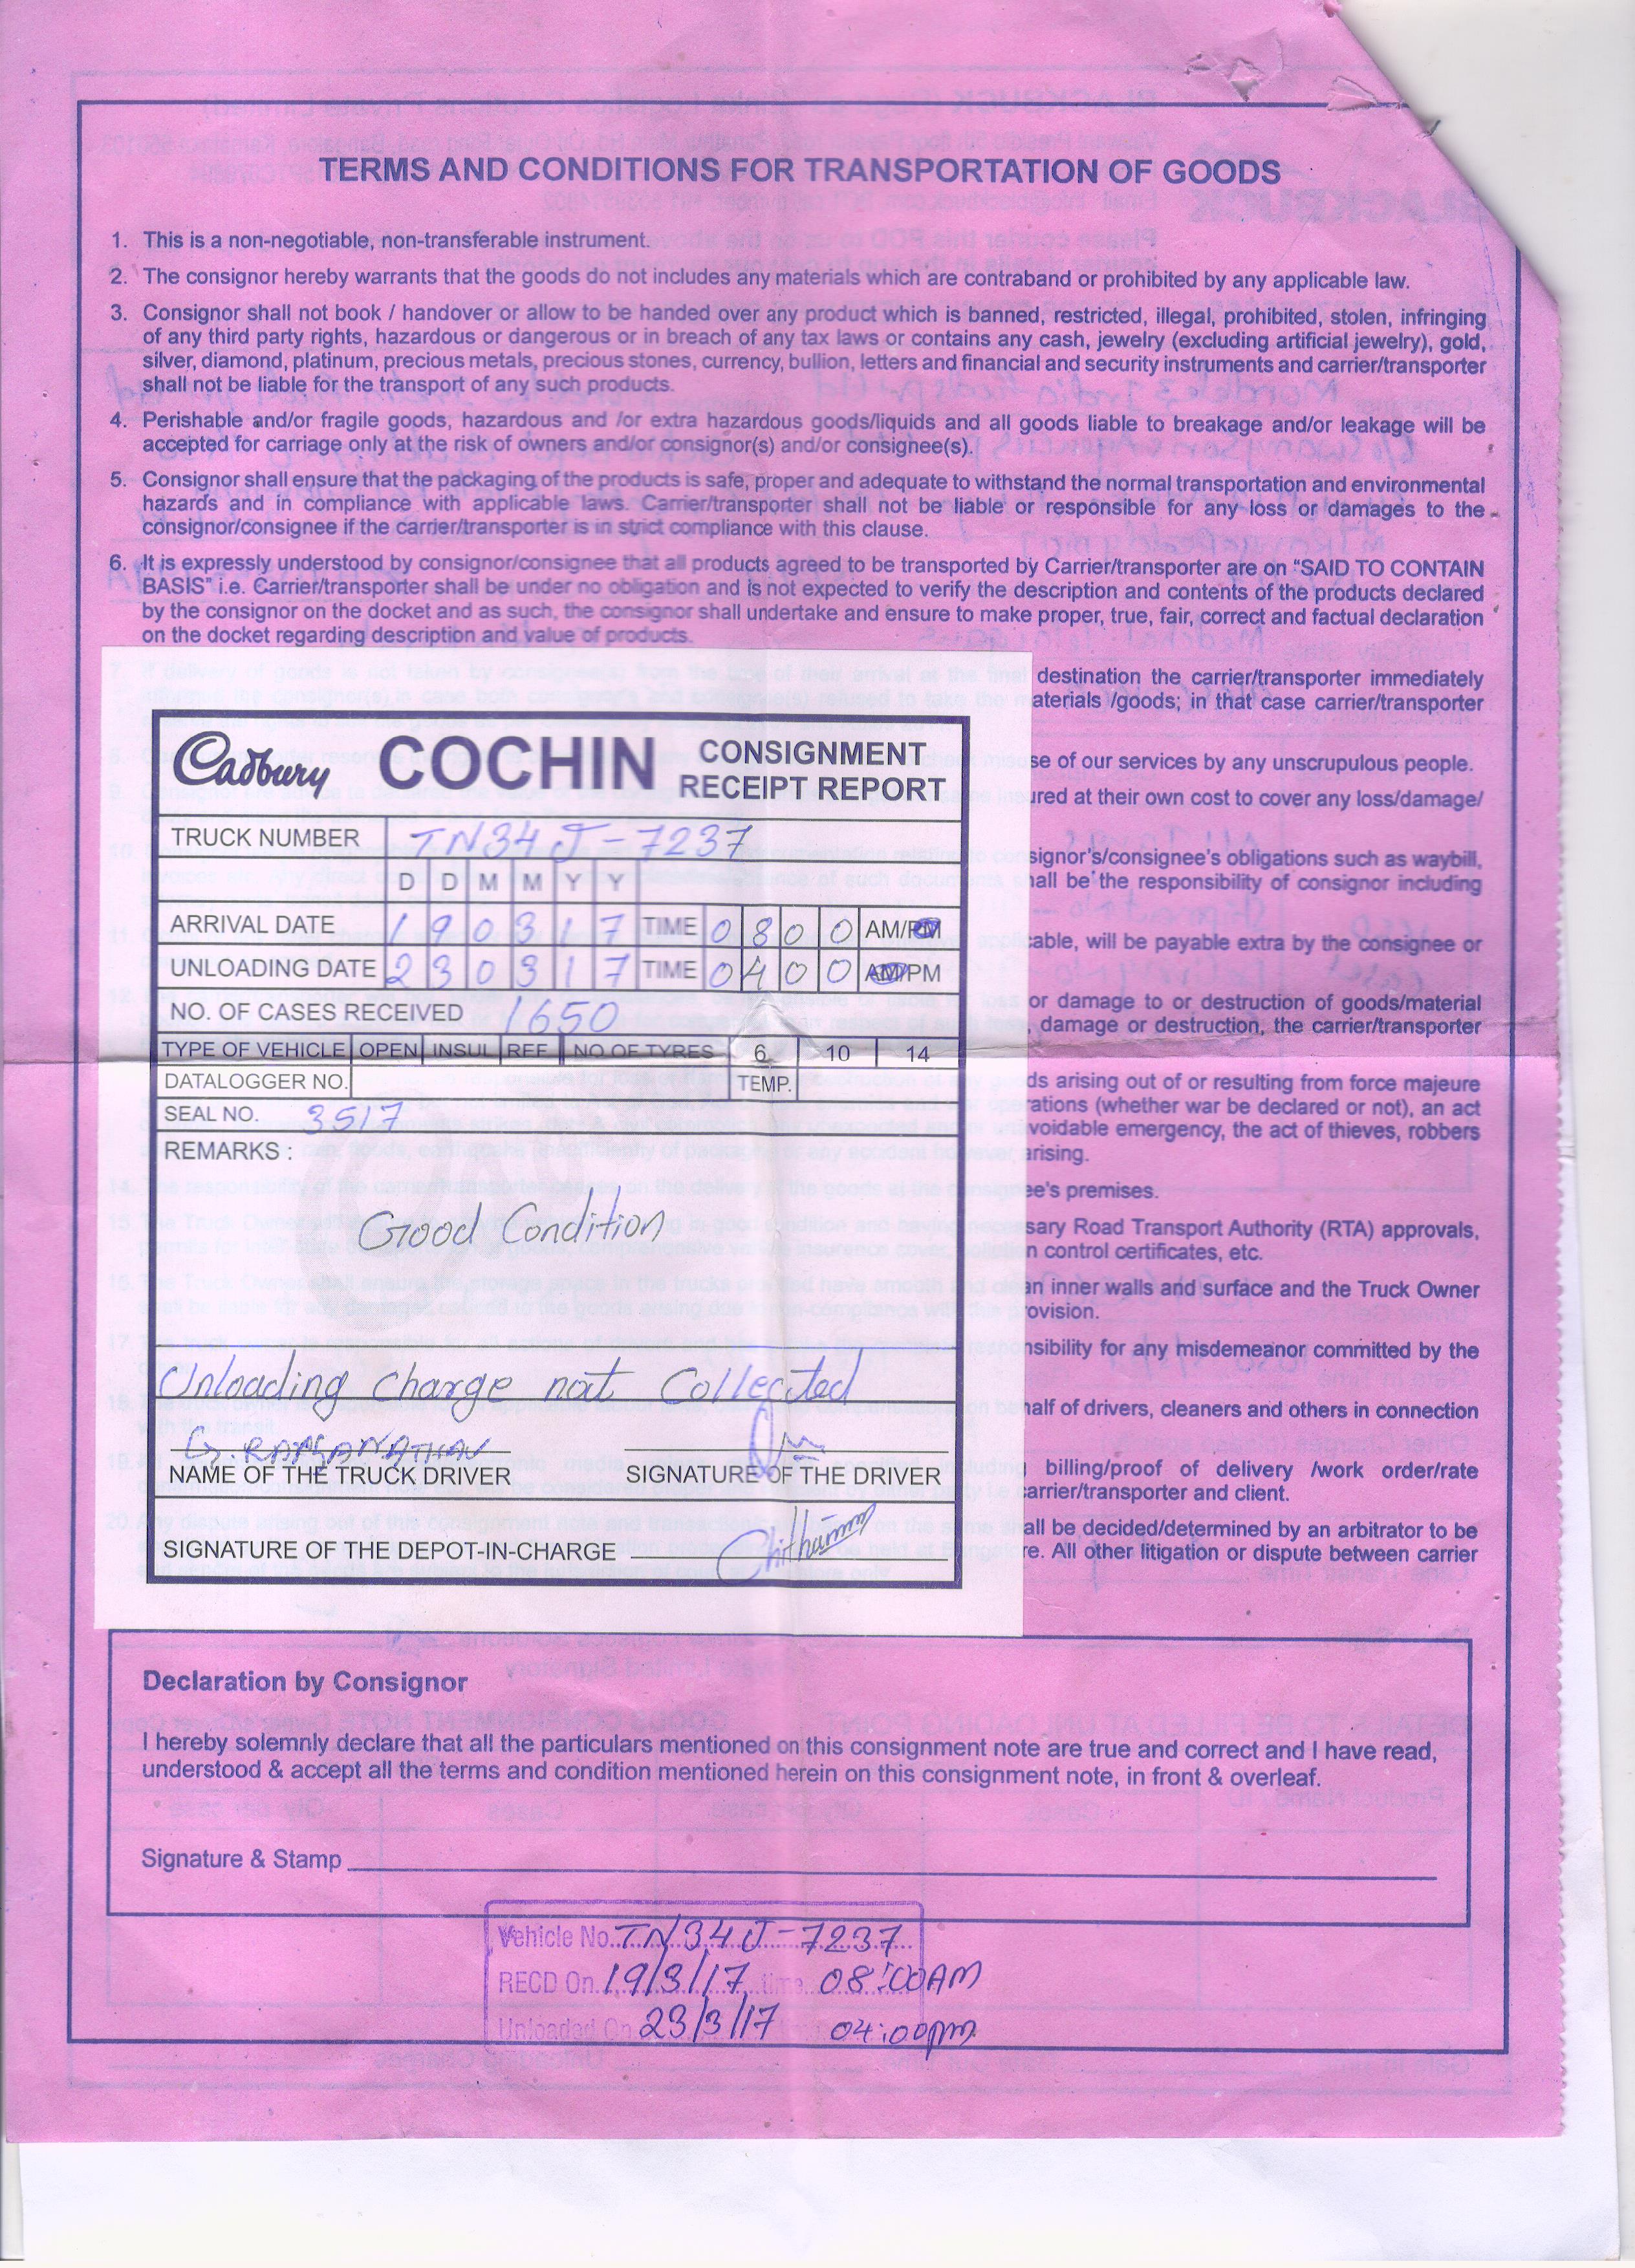 TERMS AND CONDITIONS FOR TRANSPORTATION OF GOODS
1. This is a non-negotiable, non-transferable instrument.
2. The consignor hereby warrants that the goods do not includes any materials which are contraband or prohibited by any applicable law.
3. Consignor shall not book / handover or allow to be handed over any product which is banned, restricted, illegal, prohibited, stolen, infringing
of any third party rights, hazardous or dangerous or in breach of any tax laws or contains any cash, jewelry (excluding artificial jewelry), gold,
silver, diamond, platinum, precious metals, precious stones, currency, bullion, letters and financial and security instruments and carrier/transporter
shall not be liable for the transport of any such products.
4. Perishable and/or fragile goods, hazardous and /or extra hazardous goods/liquids and all goods liable to breakage and/or leakage will be
accepted for carriage only at the risk of owners and/or consignor(s) and/or consignee(s).
5. Consignor shall ensure that the packaging of the products is safe, proper and adequate to withstand the normal transportation and environmental
hazards and in compliance with applicable laws. Carrier/transporter shall not be liable or responsible for any loss or damages to the
consignor/consignee if the carrier/transporter is in strict compliance with this clause.
6. It is expressly understood by consignor/consignee that all products agreed to be transported by Carrier/transporter are on "SAID TO CONTAIN
BASIS" i.e. Carrier/transporter shall be under no obligation and is not expected to verify the description and contents of the products declared
by the consignor on the docket and as such, the consignor shall undertake and ensure to make proper, true, fair, correct and factual declaration
on the docket regarding description and value of products.
destination the carrier/transporter immediately
aterials /goods; in that case carrier/transporter
se of our services by any unscrupulous people.
ured at their own cost to cover any loss/damage/
signor's/consignee's obligations such as waybill,
hall be the responsibility of consignor including
cable, will be payable extra by the consignee or
or damage to or destruction of goods/material
, damage or destruction, the carrier/transporter
ds arising out of or resulting from force majeure
rations (whether war be declared or not), an act
voidable emergency, the act of thieves, robbers
arising.
ee's premises.
sary Road Transport Authority (RTA) approvals,
n control certificates, etc.
an inner walls and surface and the Truck Owner
ovision.
nsibility for any misdemeanor committed by the
half of drivers, cleaners and others in connection
billing/proof of delivery /work order/rate
arrier/transporter and client.
all be decided/determined by an arbitrator to be
re. All other litigation or dispute between carrier
Cadbury COCHIN CONSIGNMENT
RECEIPT REPORT
TRUCK NUMBER TN34J-7237
D D M M Y Y
ARRIVAL DATE 190317 TIME 0800 AM/PM
UNLOADING DATE 230317 TIME 0400 AM/PM
NO. OF CASES RECEIVED 1650
TYPE OF VEHICLE OPEN INSUL REF NO OF TYRES 6 10 14
DATALOGGER NO. TEMP.
SEAL NO. 3517
REMARKS :
Good Condition
Unloading charge not Collected
G. RANGANATHAN
NAME OF THE TRUCK DRIVER SIGNATURE OF THE DRIVER
SIGNATURE OF THE DEPOT-IN-CHARGE
Declaration by Consignor
I hereby solemnly declare that all the particulars mentioned on this consignment note are true and correct and I have read,
understood & accept all the terms and condition mentioned herein on this consignment note, in front & overleaf.
Signature & Stamp
Vehicle No. TN34J-7237
RECD On 19/3/17 time 08:00AM
Unloaded On 23/3/17 04:00pm